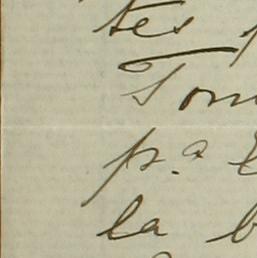 tes
Tom
p.ª
la b